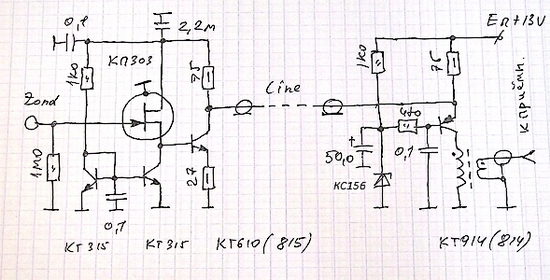 0,1
2,2м
1К0
КП303
75
Zond
Cine
1М0
27
0,1
КТ315
КТ315
КТ610 (815)
Еп+13V
1К0
75
470
50,0
+
0,1
КС156
К приёмн.
КТ914 (814)